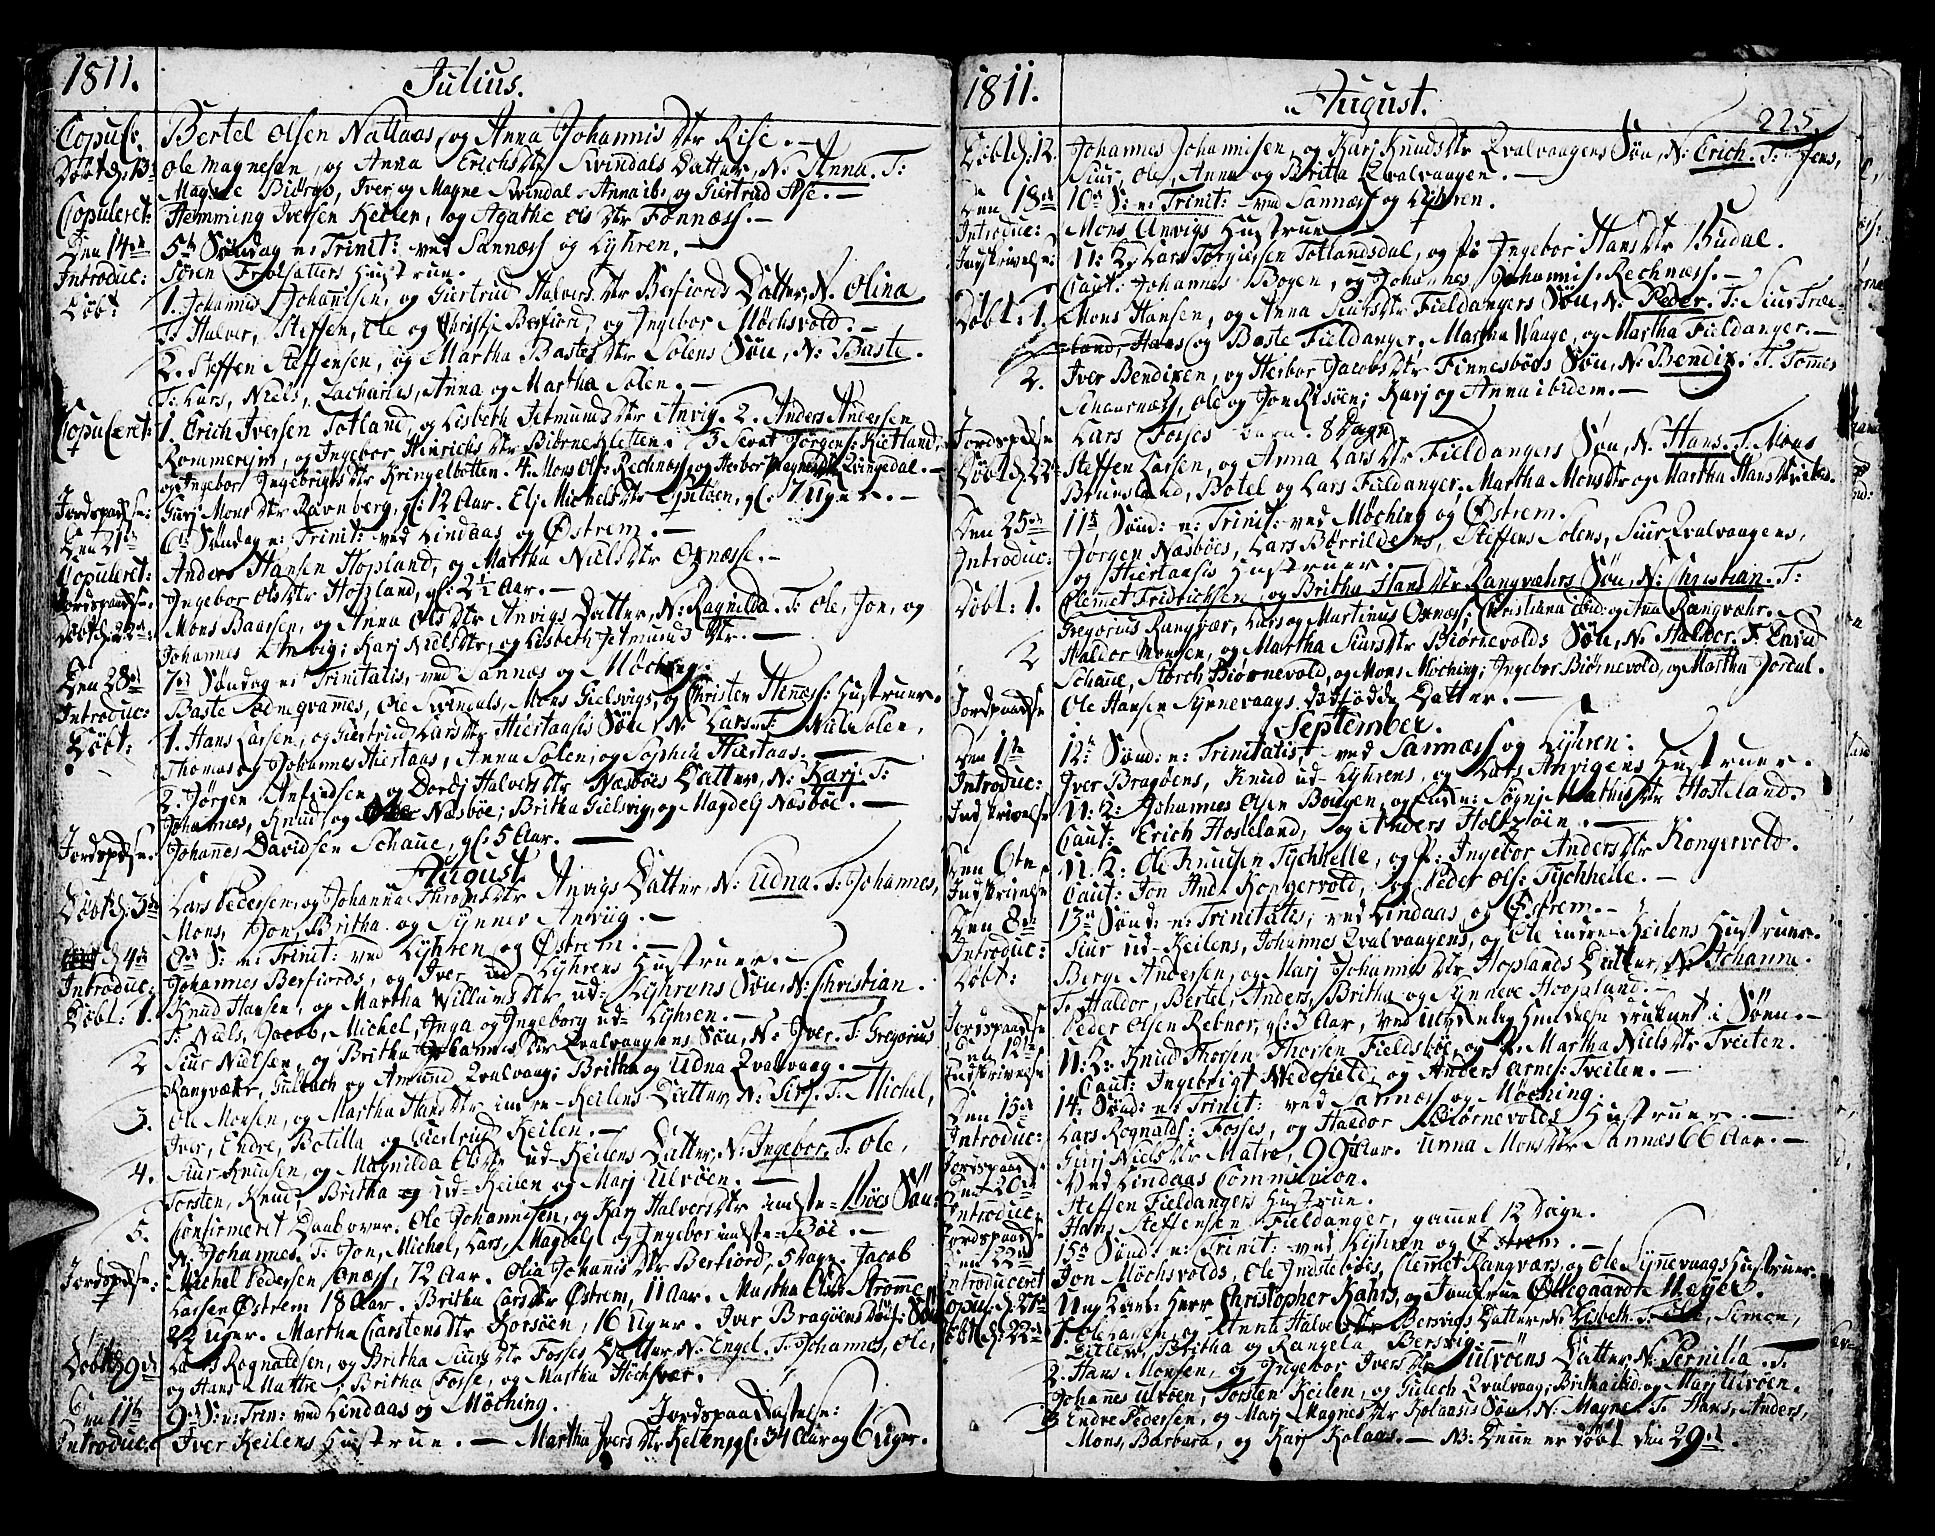 1811. Julius.
Copul: Bertel Olsen Natlaas, og Anna Johannis dtr Risе. —
Døbt d: 13de Ole Magnesen, og Anna Erichs dtr Qvindals Datter, N: Anna. T:
Magne Biørge, Iver og Magne Qvindal, Anna ib: og Giertrud
Copuleret: Hemming Iversen Keilen, og Agathe Ols dtr Fonnæss. —
Den 14de 5te Søndag n: Trinit: ved Sannæss og Lyhren. —
Introduc: Søren Hustrue.
Døbt 1. Johannis Johannisen, og Giertrud Halvers dtr Berfiords Datter, N. Olina
T: Halver, Steffen, Ole og Christj Berfiord, og Ingebor Møchsvold. —
2. Steffen Steffensen, og Martha Bastes dtr Solens Søn, N: Baste.
T: Lars, Niels, Zacharias, Anna og Martha Solen. —
Copuleret: 1. Erich Iversen Totland, og Lisbeth Jetmunds dtr Anvig. 2. Anders Andersen
Rommereim, og Ingebor Hinrichs dtr Biørnekletten. 3 Sivert Jørgens: Kietland,
og Ingebor Ingebrigts dtr Kringelbotten. 4. Mons Ols: Rechnæss, og Herbor Magnus dtr Qvingedal. —
Jordspaadse: Gurj Mons dtr Ravnberg, gl: 12 Aar. Elj Michels dtr gl: 7 Uger. —
Den 21de 6te Søndag n: Trinit: ved Lindaas og Østrem. —
Copuleret: Anders Hansen Hopsland, og Martha Niels dtr Oxnæss. —
Jordspaadse: Ingebor Ols dtr Hopsland, gl: 2½ Aar. —
Døbt d: 22de Mons Baarsen, og Anna Ols dtr Anvigs Datter, N: Ragnilda. T: Ole, Jon, og
Johannes Anvig; Karj Niels dtr, og Lisbeth Jetmunds dtr. —
Den 28de 7de Søndag n: Trinitatis, ved Sannæs og Møching.
Introduc: Baste Ole Qvindals, Mons Gielsvigs, og Christen Stenæss: Hustruer.
Døbt: 1. Hans Larsen, og Giertrud Lars dtr Hiertaasis Søn, N. Lars. T: Nils Solen,
Thomas og Johannes Hiertaas, Anna Solen, og Sophia Hiertaas. —
2. Jørgen Anfindsen og Dordj Halvers dtr Næsbøes Datter, N: Karj. T:
Johannes, Knud og Næsbøe; Britha Gielsvig, og Magdelj Næsbøe. —
Jordspdse: Johannes Davidsen Schaue, gl: 5 Aar. —
August
Døbt d: 3de Lars Pedersen, og Johanna Thrond dtr Anvigs Datter, N: Udna. T: Johannes,
Mons, Jon, Britha og Synnev Anviig. —
d 4de 8de S: n: Trinit: ved Lyhren og Østrem. —
Introduc: Johannes Berfiords, og Iver ud Lyhrens Hustruer. —
Døbt: 1. Knud Hansen, og Martha Willums dtr ud= Lyhrens Søn, N: Christian.
T: Niels, Jacob, Michel, Inga og Ingeborg ud= Lyhren. —
2 Siur Nielsen, og Britha Johannes dtr Qvalvaagens Søn, N: Iver. T: Gregorius
Rangvær, Gulbach og Amund Qvalvaag; Britha og Udna Qvalvaag. —
3. Ole Monsen, og Martha Hans dtr indre-Keilens Datter, N: Sirj. T: Michel,
Iver, Endre, Botilla og Giertrud Keilen. —
4. Siur Knudsen, og Magnilda Ols dtr ud-Keilens Datter, N: Ingebor. T: Ole,
Torsten, Knud, Britha og ud-Keilen og Marj Ulvøen. —
5. Confirmeret Daab over. Ole Johannisen, og Karj Halvers dtr indste=Bøes Søn
N: Johannes. T: Jon, Michel, Lars, Magdelj og Ingebor indste=Bøe. —
Jordspdse: Michel Pedersen Oxnæss, 72 Aar. Olia Johannis dtr Berfiord, 5 Dage. Jacob
Larsen Østrem 18 Aar. Britha Lars dtr Østrem, 11 Aar. Martha Ols dtr Strømme
22 Uger. Martha Carstens dtr Korsøen, 16 Uger. Iver Bragøens
Døbt d 9de Lars Rognaldsen, og Britha Siurs dtr Fosses Datter, N: Engel. T: Johannes, Ole,
og Hans Mattre; Britha Fosse, og Martha Høchsvær.
Den 11te 9de S: n: Trin: ved Lindaas og Møching. Jordspaadskastelse:
Introduc: Iver Keilens Hustrue. — Martha Ivers dtr Keilen, gl: 34 Aar og 6 Uger.
1811. August. 225.
Døbt d: 12. Johannes Johannisen, og Karj Knuds dtr Qvalvaagens Søn, N: Erich. T: Jens,
Siur, Ole, Anna og Britta Qvalvaagen. —
Den 18de 10de S: n: Trinit: ved Sannæss og Lyhren.
Introduc: Mons Anvigs Hustrue —
Indskrivelse: U: K: Lars Torgiersen Totlandsdal, og P: Ingebor Hans dtr Budal.
Caut: Johannes Bogen, og Johannes Johannis: Rechnæss. —
Døbt: 1. Mons Hansen, og Anna Siurs dtr Fieldangers Søn, N: Peder. T: Siur Træe-
land, Hans og Baste Fieldanger. Martha Waage, og Martha Fieldanger. —
2. Iver Bendixen, og Herbor Jacobs dtr Finnesbøes Søn, N: Bendix. T: Tomes
Schaarnæss, Ole og Jon Risøen; Karj og Anna ibidem. —
Jordspaadse Lars Fosses Barn. 8 Dage
Døbt d: 22de Steffen Larsen, og Anna Lars dtr Fieldangers Søn, N. Hans. T. Mons
Bruunsland, Botel og Lars Fieldanger, Martha Mons dtr og Martha Hans dtr ibid.
Den 25de 11te Sønd: n: Trinit: ved Møching og Østrem.
Introduc: Jørgen Næsbøes, Lars Børrildens, Steffens Solens, Siur Qvalvaagens,
og Hiertaasis Hustruer.
Døbt: 1. Clemet Fridrichsen, og Britha Hans dtr Rangværs Søn, N: Christian. T:
Gregorius Rangvær, Lars og Martinus Oxnæs; Christiana ibid: og Ana Rangvær.
2 Haldor Monsen, og Martha Siurs dtr Biørnevolds Søn, N: Haldor. T. David
Schaue, Størch Biørnevold, og Mons Møching; Ingebor Biørnevold, og Martha Jordal.
Jordspaadse Ole Hansen Synnevaags dødfødde Datter. —
September.
Den 1te 12te Sønd: n: Trinitatis, ved Sannæss og Lyhren:
Introduc: Iver Bragøens, Knud ud-Lyhrens, og Lars Anvigens Hustruer.
Indskrivelse U: K: Johannes Olsen Bougen, og Enken: Sygnj Mathis dtr Hosteland.
Caut: Erich Hosteland, og Anders Holtzøen. —
Den 6te U: K: Ole Knudsen Tychhelle, og P: Ingebor Anders dtr Kongervold.
Indskrivelse Caut: Jon And: Kongervold, og Peder Ols: Tychhelle. —
Den 8de 13de Sønd: n: Trinitatis, ved Lindaas og Østrem. —
Introduc: Siur ud-Keilens, Johannes Qvalvaagens, og Ole indre-Keilens Hustruer.
Døbt: Berge Andersen, og Marj Johannis dtr Hoplands Datter, N: Johanna.
T: Haldor, Bertel, Anders, Britha og Synneve Hoopland. —
Jordspaadse Peder Olsen Rebnor, gl: 3 Aar, ved ulydelig Hændelse druknet i Søen. —
Den 12te U: K: Knud Thorsen Fieldsbøe, og P. Martha Niels dtr Tveiten.
Indskrivelse Caut: Ingebrigt Nedefield, og Anders Arnes: Tveiten. —
Den 15de 14. Sønd: n: Trinit: ved Sannæss og Møching.
Introduc: Lars Rognalds: Fosses, og Haldor Biørnevolds Hustruer. —
Jordspaadse Gurj Niels dtr Matre, 99 Aar. Unna Mons dtr Sannæs 66 Aar. —
Den 20de Ved Lindaas Communion.
Introduc: Steffen Fieldangers Hustrue.
Jordspaadse Hans Steffensen Fieldanger, gammel 12 Dage.
Den 22de 15de Sønd: n: Trinit: ved Lyhren og Østrem. —
Introduceret Jon Møchsvolds, Ole Indstebøes, Clemet Rangværs, og Ole Synnevaags Hustruer.
Copul: d: Ung Karl: Herr Christopher Kahrs, og Jomfrue Øllegaard Meyer.
Døbt d: 22de 1. Ole Larsen, og Anna Halvers dtr Bersvigs Datter, N: Lisbeth. T: Ole, Simon,
Britha og Rangela Bersvig. —
2. Hans Monsen, og Ingebor Ivers dtr Ulvøens Datter, N: Pernilla. T:
Johannes Ulvøen, Torsten Keilen, og Gulech Qvalvaag; Britha ibid: og Marj Ulvøen.
3 Endre Pedersen, og Marj Magnes dtr Kolaasis Søn, N: Magne. T: Hans, Anders,
Mons, Barbara, og Karj Kolaas. — NB: Denne er døbt den 29de.